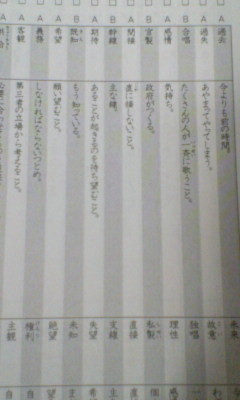 A 過去 今よりも前の時間。 未来
A 過失 あやまってやってしまう。 故意
B 合唱 たくさんの人が一斉に歌うこと。 独唱
A 感情 気持ち。 理性
B 官製 政府がつくる。 私製
A 間接 直に接しないこと。 直接
B 幹線 主な線。 支線
A 期待 あることが起きるのを待ち望むこと。 失望
B 既知 もう知っている。 未知
A 希望 願い望むこと。 絶望
A 義務 しなければならないつとめ。 権利
A 客観 第三者の立場から考えること。 主観